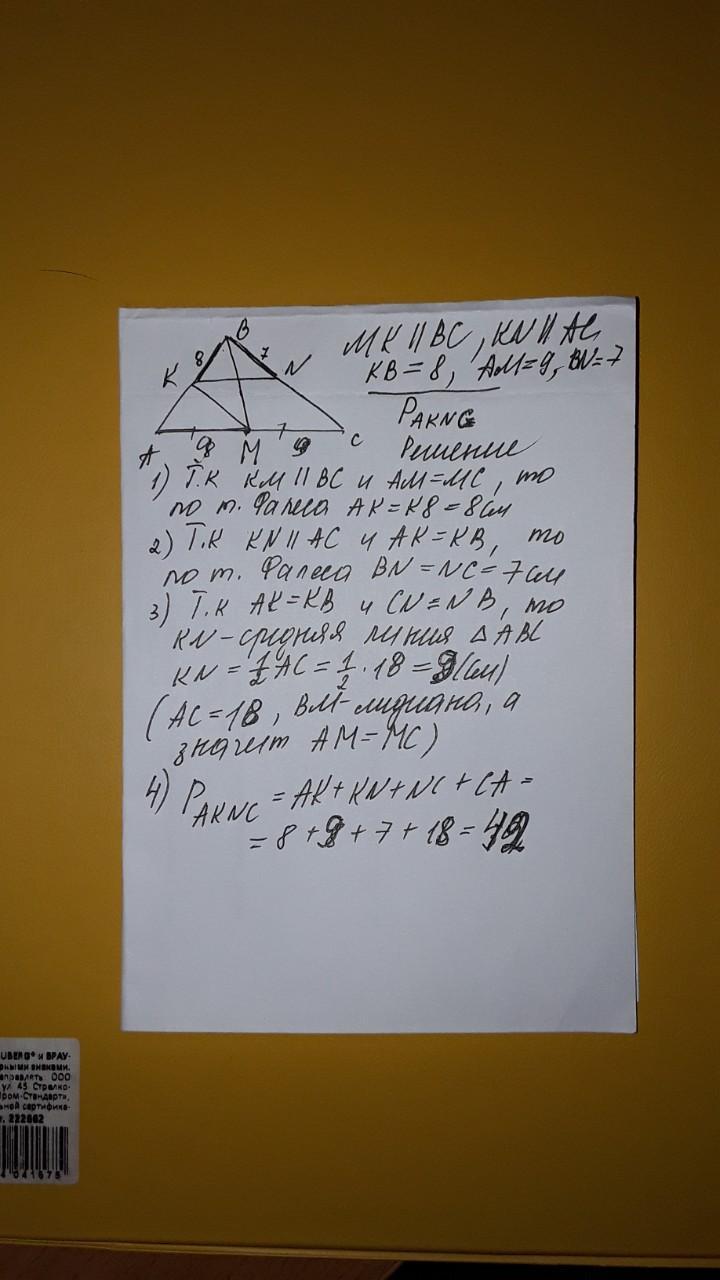 B
8
7
K
N
A
9
M
9
C
MK || BC, KN || AC
KB = 8, AM = 9, BN = 7
P AKNC
Решение
1) Т.к KM || BC и AM = MC, то
по т. Фалеса AK = KB = 8 см
2) Т.к KN || AC и AK = KB, то
по т. Фалеса BN = NC = 7 см
3) Т.к AK = KB и CN = NB, то
KN - средняя линия △ ABC
KN = 1/2 AC = 1/2 · 18 = 9 (см)
(AC = 18, BM - медиана, а
значит AM = MC)
4) P AKNC = AK + KN + NC + CA =
= 8 + 9 + 7 + 18 = 42
UBERG® и БРАУ-
рными знаками.
аправлять ООО
ул 45 Стрелко-
Пром-Стандарт»,
льной сертифика-
т. 222662
4 041675